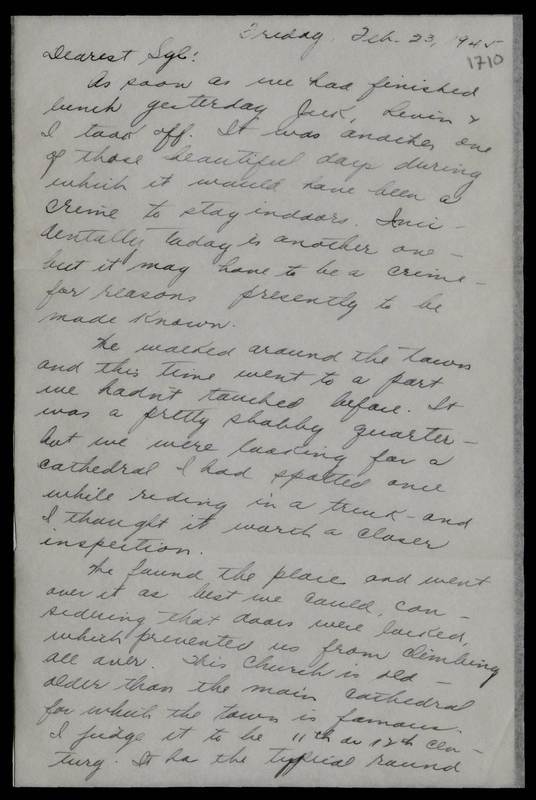 Friday, Feb. 23, 1945
1710
Dearest Syl:
As soon as we had finished
lunch yesterday Jack, Levin &
I took off. It was another one
of those beautiful days during
which it would have been a
crime to stay indoors. Inci-
dentally today is another one -
but it may have to be a crime -
for reasons presently to be
made known.
We walked around the town
and this time went to a part
we hadn't touched before. It
was a pretty shabby quarter -
but we were looking for a
cathedral I had spotted once
while riding in a truck - and
I thought it worth a closer
inspection.
We found the place and went
over it as best we could, con-
sidering that doors were locked,
which prevented us from climbing
all over. This church is old -
older than the main cathedral
for which the town is famous.
I judge it to be 11th or 12th cen-
tury. It has the typical round